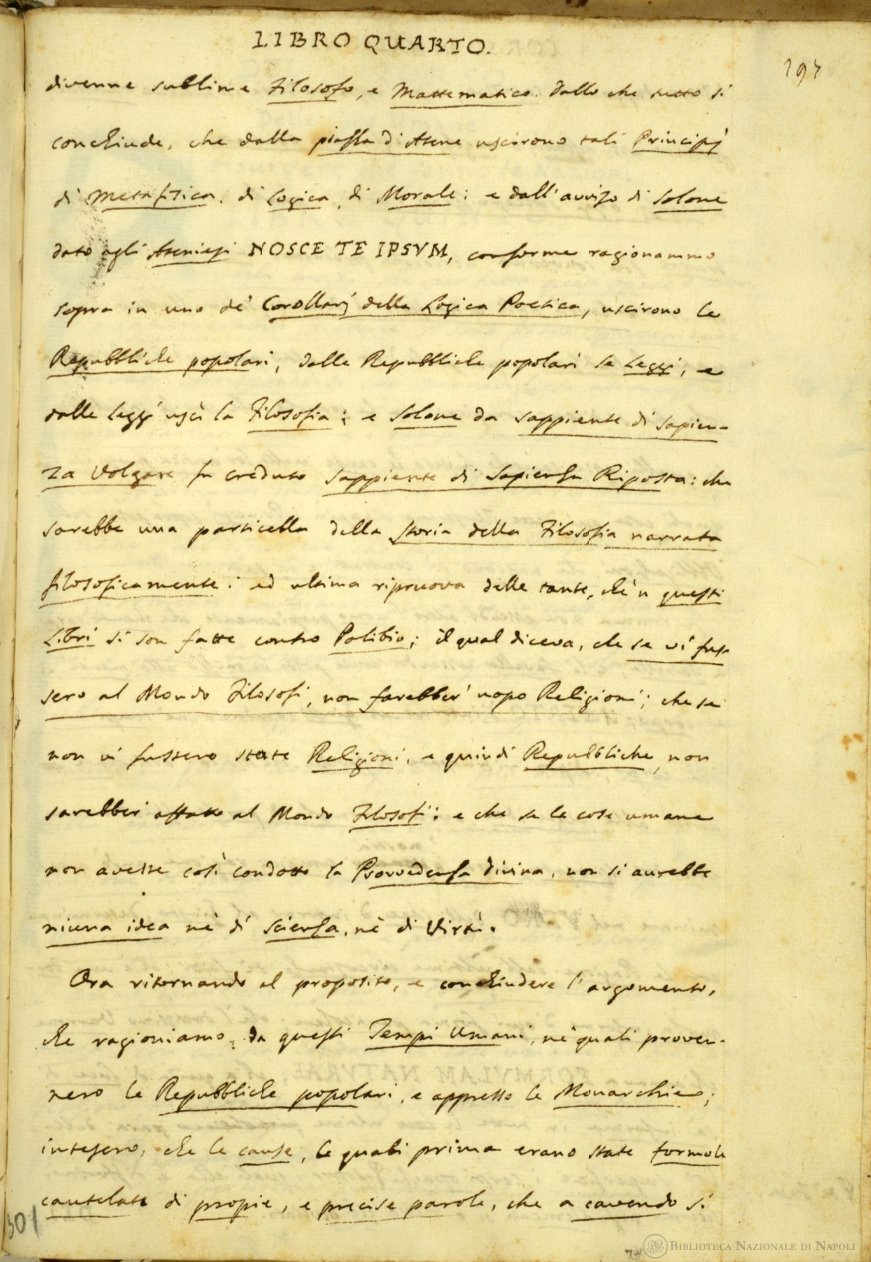 LIBRO QUARTO.
297
divenne sublime Filosofo, e Mattematico. dallo che tutto si
conchiude, che dalla piazza d'Atene uscirono tali Principj
di Metafisica, di Logica, di Morale: e dall'avviso di Solone
dato agli Ateniesi NOSCE TE IPSVM, conforme ragionammo
sopra in uno de' Corollarj della Logica Poetica, uscirono le
Repubbliche popolari, dalle Repubbliche popolari le Leggi, e
dalle Leggi uscì la Filosofia; e Solone da sappiente di sapien-
za Volgare fu creduto sappiente di Sapienza Riposta: che
sarebbe una particella della Storia della Filosofia narrata
filosoficamente: ed ultima ripruova delle tante, ch'n questi
Libri si son fatte contro Polibio; il qual diceva, che se vi fus-
sero al Mondo Filosofi, non sarebber' uopo Religioni; che se
non vi fussero state Religioni, e quindi Repubbliche, non
sarebber' affatto al Mondo Filosofi; e che se le cose umane
non avesse così condotto la Provvedenza divina, non si aurebbe
niuna idea nè di Scienza, nè di Virtù.
Ora ritornando al proposito, e conchiudere l'argomento,
che ragioniamo, da questi Tempi Umani, ne' quali proven-
nero le Repubbliche popolari, e appresso le Monarchie;
intesero, che le cause, le quali prima erano state formole
cautelate di propie, e precise parole, che a cavendo si
301
BIBLIOTECA NAZIONALE DI NAPOLI